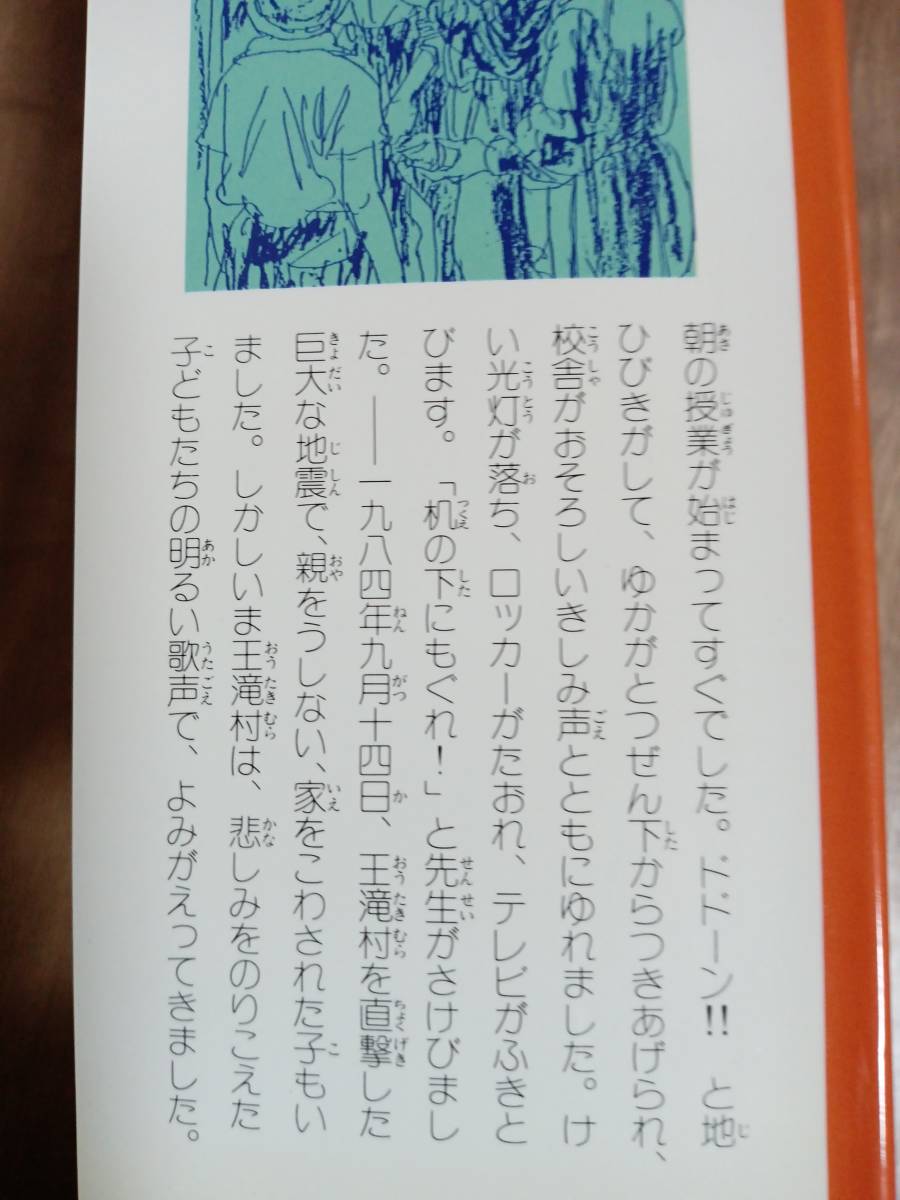 朝の授業が始まってすぐでした。ドドーン!! と地
ひびきがして、ゆかがとつぜん下からつきあげられ、
校舎がおそろしいきしみ声とともにゆれました。け
い光灯が落ち、ロッカーがたおれ、テレビがふきと
びます。「机の下にもぐれ!」と先生がさけびまし
た。――一九八四年九月十四日、王滝村を直撃した
巨大な地震で、親をうしない、家をこわされた子もい
ました。しかしいま王滝村は、悲しみをのりこえた
子どもたちの明るい歌声で、よみがえってきました。